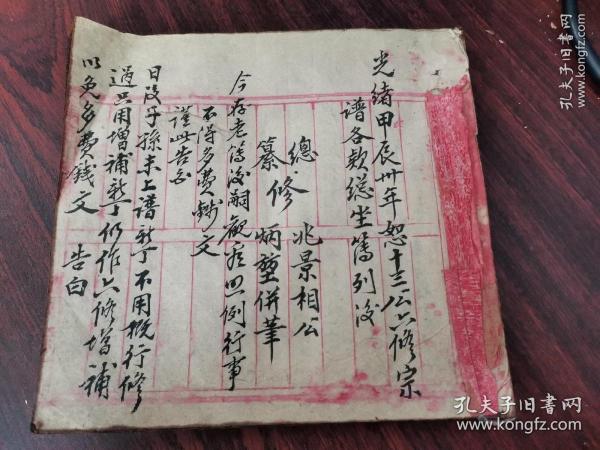 光緒甲辰卅年恕十三公六修宗
譜各欵總坐簿列後
總修 兆景相公
纂 炳塋併筆
今存老簿後嗣觀后照例行事
不得多費錢文
謹此告白
日後子孫未上譜新丁不用概行修
過只用增補新丁仍作六修增補
以免多費錢文 告白
孔夫子旧书网
孔夫子旧书网